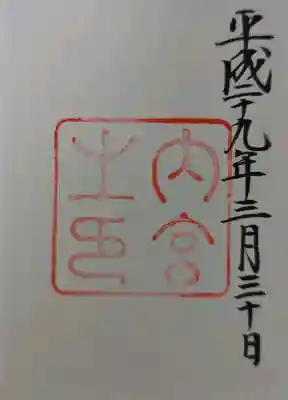 平成二十九年三月三十日
内宮
之印